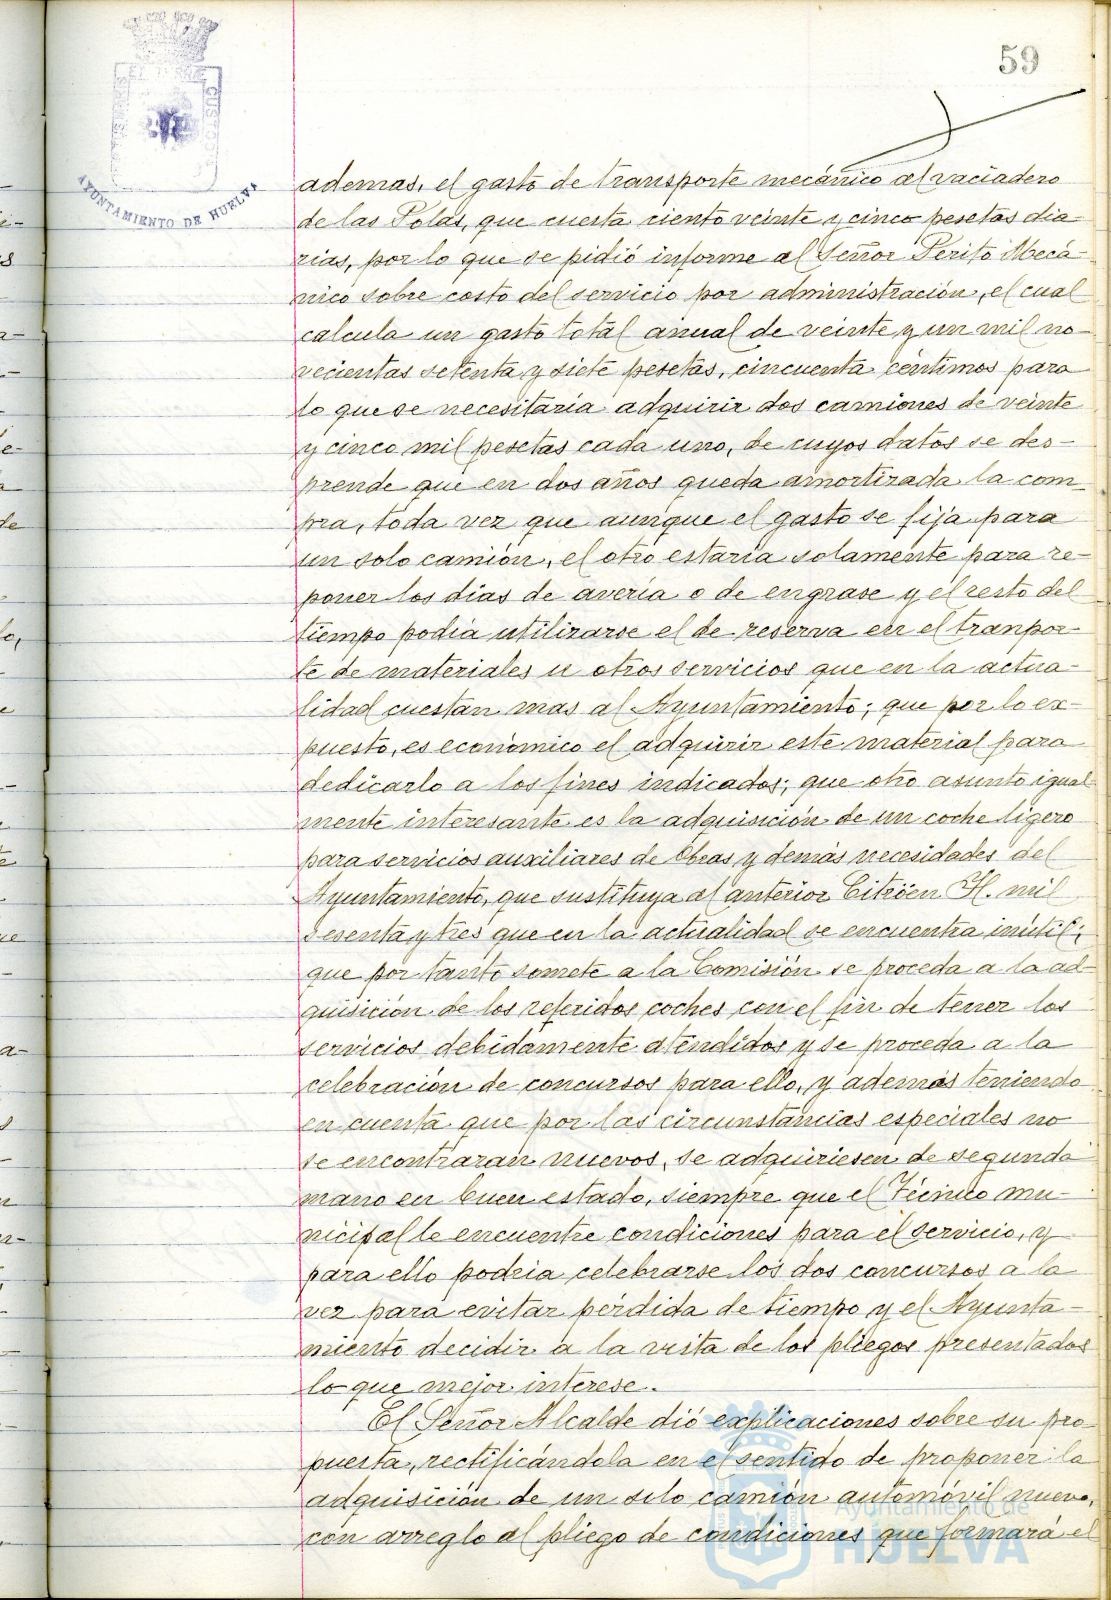 59
AYUNTAMIENTO DE HUELVA
ademas, el gasto de transporte mecánico al vaciadero
de las Polas, que cuesta ciento veinte y cinco pesetas dia-
rias, por lo que se pidió informe al Señor Perito Mecá-
nico sobre costo del servicio por administración, el cual
calcula un gasto total anual de veinte y un mil no-
vecientas setenta y siete pesetas, cincuenta céntimos para
lo que se necesitaria adquirir dos camiones de veinte
y cinco mil pesetas cada uno, de cuyos datos se des-
prende que en dos años queda amortizada la com-
pra, toda vez que aunque el gasto se fija para
un solo camión, el otro estaría solamente para re-
poner los dias de avería o de engrase y el resto del
tiempo podia utilizarse el de reserva en el tranpor-
te de materiales u otros servicios que en la actua-
lidad cuestan mas al Ayuntamiento; que por lo ex-
puesto, es económico el adquirir este material para
dedicarlo a los fines indicados; que otro asunto igual-
mente interesante es la adquisición de un coche ligero
para servicios auxiliares de Obras y demás necesidades del
Ayuntamiento, que sustituya al anterior Citröen H. mil
sesenta y tres que en la actualidad se encuentra inútil;
que por tanto somete a la Comisión se proceda a la ad-
quisición de los referidos coches con el fin de tener los
servicios debidamente atendidos y se proceda a la
celebración de concursos para ello, y además teniendo
en cuenta que por las circunstancias especiales no
se encontraran nuevos, se adquiriesen de segunda
mano en buen estado, siempre que el Técnico mu-
nicipal le encuentre condiciones para el servicio, y
para ello podria celebrarse los dos concursos a la
vez para evitar pérdida de tiempo y el Ayunta-
miento decidir a la vista de los pliegos presentados
lo que mejor interese.
El Señor Alcalde dió explicaciones sobre su pro-
puesta, rectificándola en el sentido de proponer la
adquisición de un solo camión automóvil nuevo,
con arreglo al pliego de condiciones que formará el
Ayuntamiento de
HUELVA